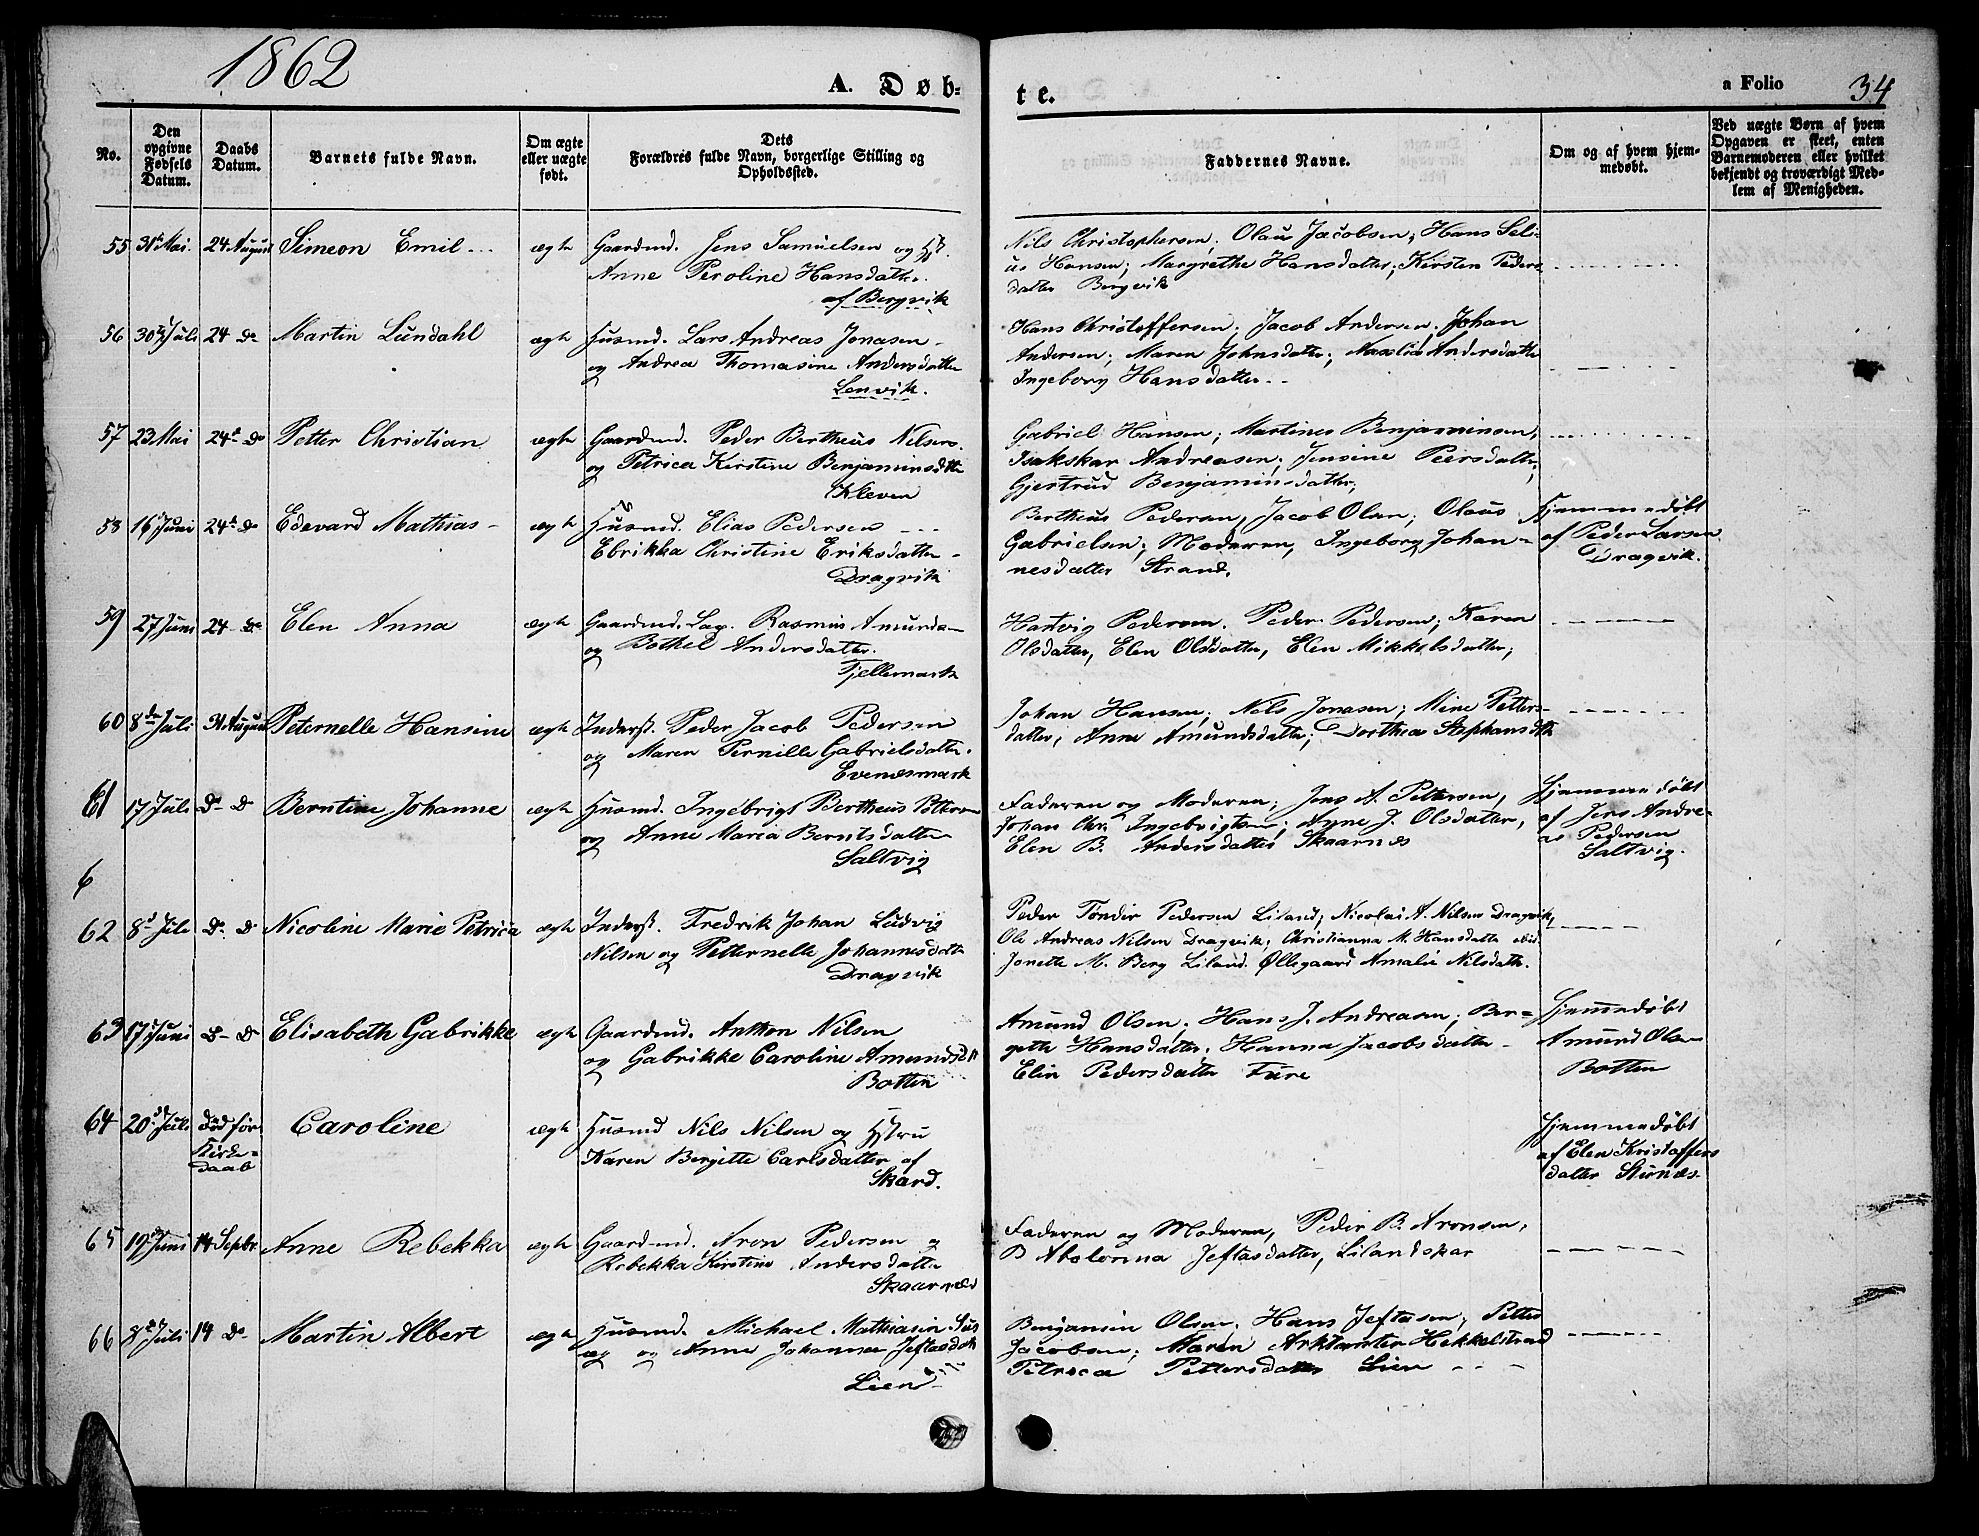 1862
A. Døb-
te.
a Folio 34
No.
Den opgivne Fødsels Datum.
Daabs Datum.
Barnets fulde Navn.
Om ægte eller uægte født.
Dets Forældres fulde Navn, borgerlige Stilling og Opholdssted.
Faddernes Navne.
Om og af hvem hjemmedøbt.
Ved uægte Børn af hvem Opgaven er skeet, enten Barnemoderen eller hvilket bekjendt og troværdigt Medlem af Menigheden.
55 31 Mai 24 August Simeon Emil ægte Gaardmd. Jens Samuelsen og
Anne Peroline Hansdatter
af Bergvik
Nils Christophersen, Olaus Jacobsen; Hans Seli-
us Hansen; Margrethe Hansdatter; Kirsten Peders
datter Bergvik
56 30 Juli 24 do Martin Lundahl ægte Husmd. Lars Andreas Jonasen
og Andrea Thomasine Andersdatter
Lenvik.
Hans Christoffersen, Jacob Andersen. Johan
Andersen; Maren Johnsdatter; Andersdatter
Ingeborg Hansdatter
57 23 Mai 24 do Petter Christian ægte Gaardmd. Peder Bertheus Nilsen
og Petrica Kirstine Benjaminsdtter
Kleven
Gabriel Hansen; Martines Benjaminsen,
Isakskar Andreasen; Jensine Peersdatter,
Gjertrud Benjaminsdatter;
58 16 Juni 24 do Edevard Mathias ægte Husmd. Elias Pedersen
Ebrikka Christine Eriksdatter
Dragvik
Bertheus Pedersen, Jacob Olsen; Olaus
Gabrielsen; Moderen, Ingeborg Johan-
nesdatter Strand.
Hjemmedøbt
af Peder Larsen
Dragvik.
59 27 Juni 24 do Elen Anna ægte Gaardmd. Lap. Rasmus Amundsen
og Bothel Andersdatter.
Fjellemark
Hartvig Pedersen. Peder Pedersen; Karen
Olsdatter, Elen Olsdatter, Elen Mikkelsdatter;
60 8de Juli 31 August Peternelle Hansine ægte Inderst. Peder Jacob Pedersen
og Maren Pernille Gabrielsdatter.
Evenesmark
Johan Hansen; Nils Jonasen; Mine Petter-
datter, Anne Amundsdatter; Dorthea Stephansdtr
61 17 Juli Do D Berntine Johanne ægte Husmd. Ingebrigt Bertheus Pettersen
og Anne Maria Berntsdatter
Saltvig
Faderen og Moderen; Jens A. Pettersen,
Johan Chr. Ingebrigtsen; Anne J. Olsdatter,
Elen B. Andersdatter Skaarnæs
Hjemmedøbt
af Jens Andre-
as Pedersen
Saltvig.
6
62 8 Juli Do D Nicoline Marie Petrica ægte Inderst. Fredrik Johan Ludvig
Nilsen og Petternelle Johannesdatter
Dragvik
Peder Tønder Pedersen Liland; Nicolai A. Nilsen Dragvik,
Ole Andreas Nilsen Dragvik; Christianna M. Hansdatter ibid.
Jonette M. Berg Liland. Øllegaard Amalie Nilsdatter.
63 17 Juni D D Elisabeth Gabrikke ægte Gaardmd. Anthon Nilsen
og Gabrikke Caroline Amundsdtr
Botten
Amund Olsen. Hans J. Andreasen; Ber-
gette Hansdatter. Hanna Jacobsdatter
Elen Pedersdatter Fure
Hjemmedøbt
Amund Olsen
Botten
64 20 Juli død før
Kirke-
daab
Caroline ægte Husmd Nils Nilsen og Hustru
Karen Bergitte Carlsdatter af
Skard.
Hjemmedøbt
af Elen Kristoffers
datter Stunæs
65 19 Juni 14 Septbr Anne Rebekka ægte Gaardmd. Aron Pedersen og
Rebekka Kirstine Andersdatter
Skaarnæs
Faderen og Moderen, Peder B. Aronsen,
B Abelonna Jeftasdatter, Lilandskar
66 Juli 14 Do Martin Albert ægte Husmd. Michael Mathiasen
og Anne Johanna Jeftasdatter
Lien
Benjamin Olsen. Hans Jeftasen, Petter
Jacobsen; Maren Hekkelstrand
Petrica Pettersdatter Lien